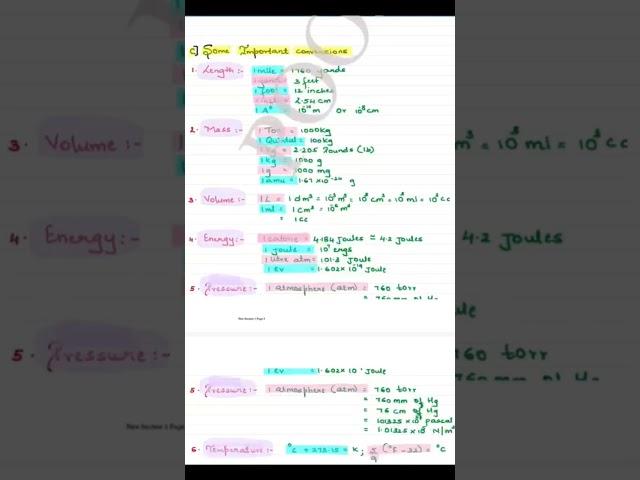 C] Some Important conversions
1. Length :- 1 mile = 1760 yards
1 yard = 3 feet
1 foot = 12 inches
1 inch = 2.54 cm
1 A° = 10⁻¹⁰ m or 10⁻⁸ cm
2. Mass :- 1 Ton = 1000kg
1 Quintal = 100kg
1 kg = 2.205 Pounds (lb)
1 kg = 1000 g
1 g = 1000 mg
1 amu = 1.67 × 10⁻²⁴ g
3. Volume :- 1 L = 1 dm³ = 10⁻³ m³ = 10³ cm³ = 10³ ml = 10³ cc
1 ml = 1 cm³ = 10⁻⁶ m³
= 1 cc
4. Energy :- 1 calorie = 4.184 Joules ≃ 4.2 joules
1 joule = 10⁷ ergs
1 litre atm = 101.3 Joule
1 ev = 1.602 × 10⁻¹⁹ Joule
5. Pressure :- 1 atmosphere (atm) = 760 torr
= 760 mm of Hg
New Section 1 Page 2
1 ev = 1.602 × 10 Joule
5. Pressure :- 1 atmosphere (atm) = 760 torr
= 760 mm of Hg
= 76 cm of Hg
= 101325 × 10 pascal
= 1.01325 × 10⁵ N/m²
6. Temperature :- °C + 273.15 = K ; 5/9 (°F - 32) = °C
3. Volume :-
m³ = 10³ ml = 10³ cc
4. Energy :-
4.2 Joules
5. Pressure :-
760 torr
New Section 1 Page